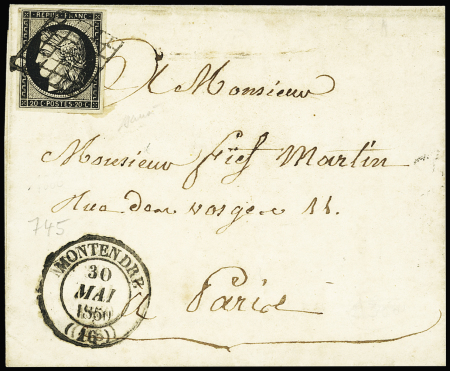 REPUB. FRANC.
20 C. POSTES 20 C.
A Monsieur
Monsieur Martin
Rue des vosges 11.
Paris
745
MONTENDRE
30
MAI
1850
(16)